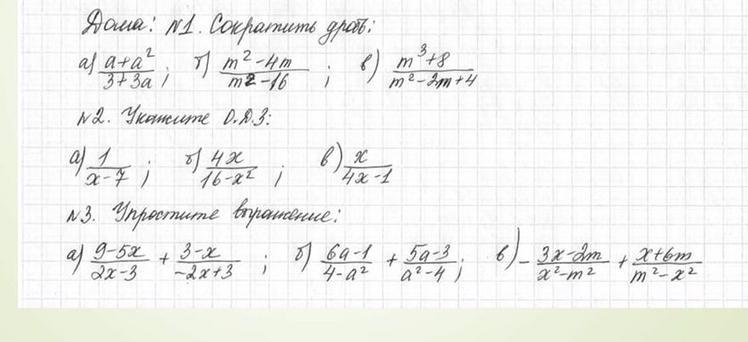 Дома: №1. Сократить дробь:
а) (a+a²)/(3+3a); б) (m²-4m)/(m²-16); в) (m³+8)/(m²-2m+4)
№2. Укажите О.Д.З:
а) 1/(x-7); б) 4x/(16-x²); в) x/(4x-1)
№3. Упростите выражение:
а) (9-5x)/(2x-3) + (3-x)/(-2x+3); б) (6a-1)/(4-a²) + (5a-3)/(a²-4); в) -(3x-2m)/(x²-m²) + (x+6m)/(m²-x²)